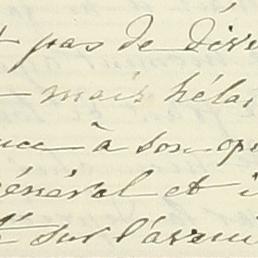 pas de dive
mais héla
à son op
général et i
sur l'aveni